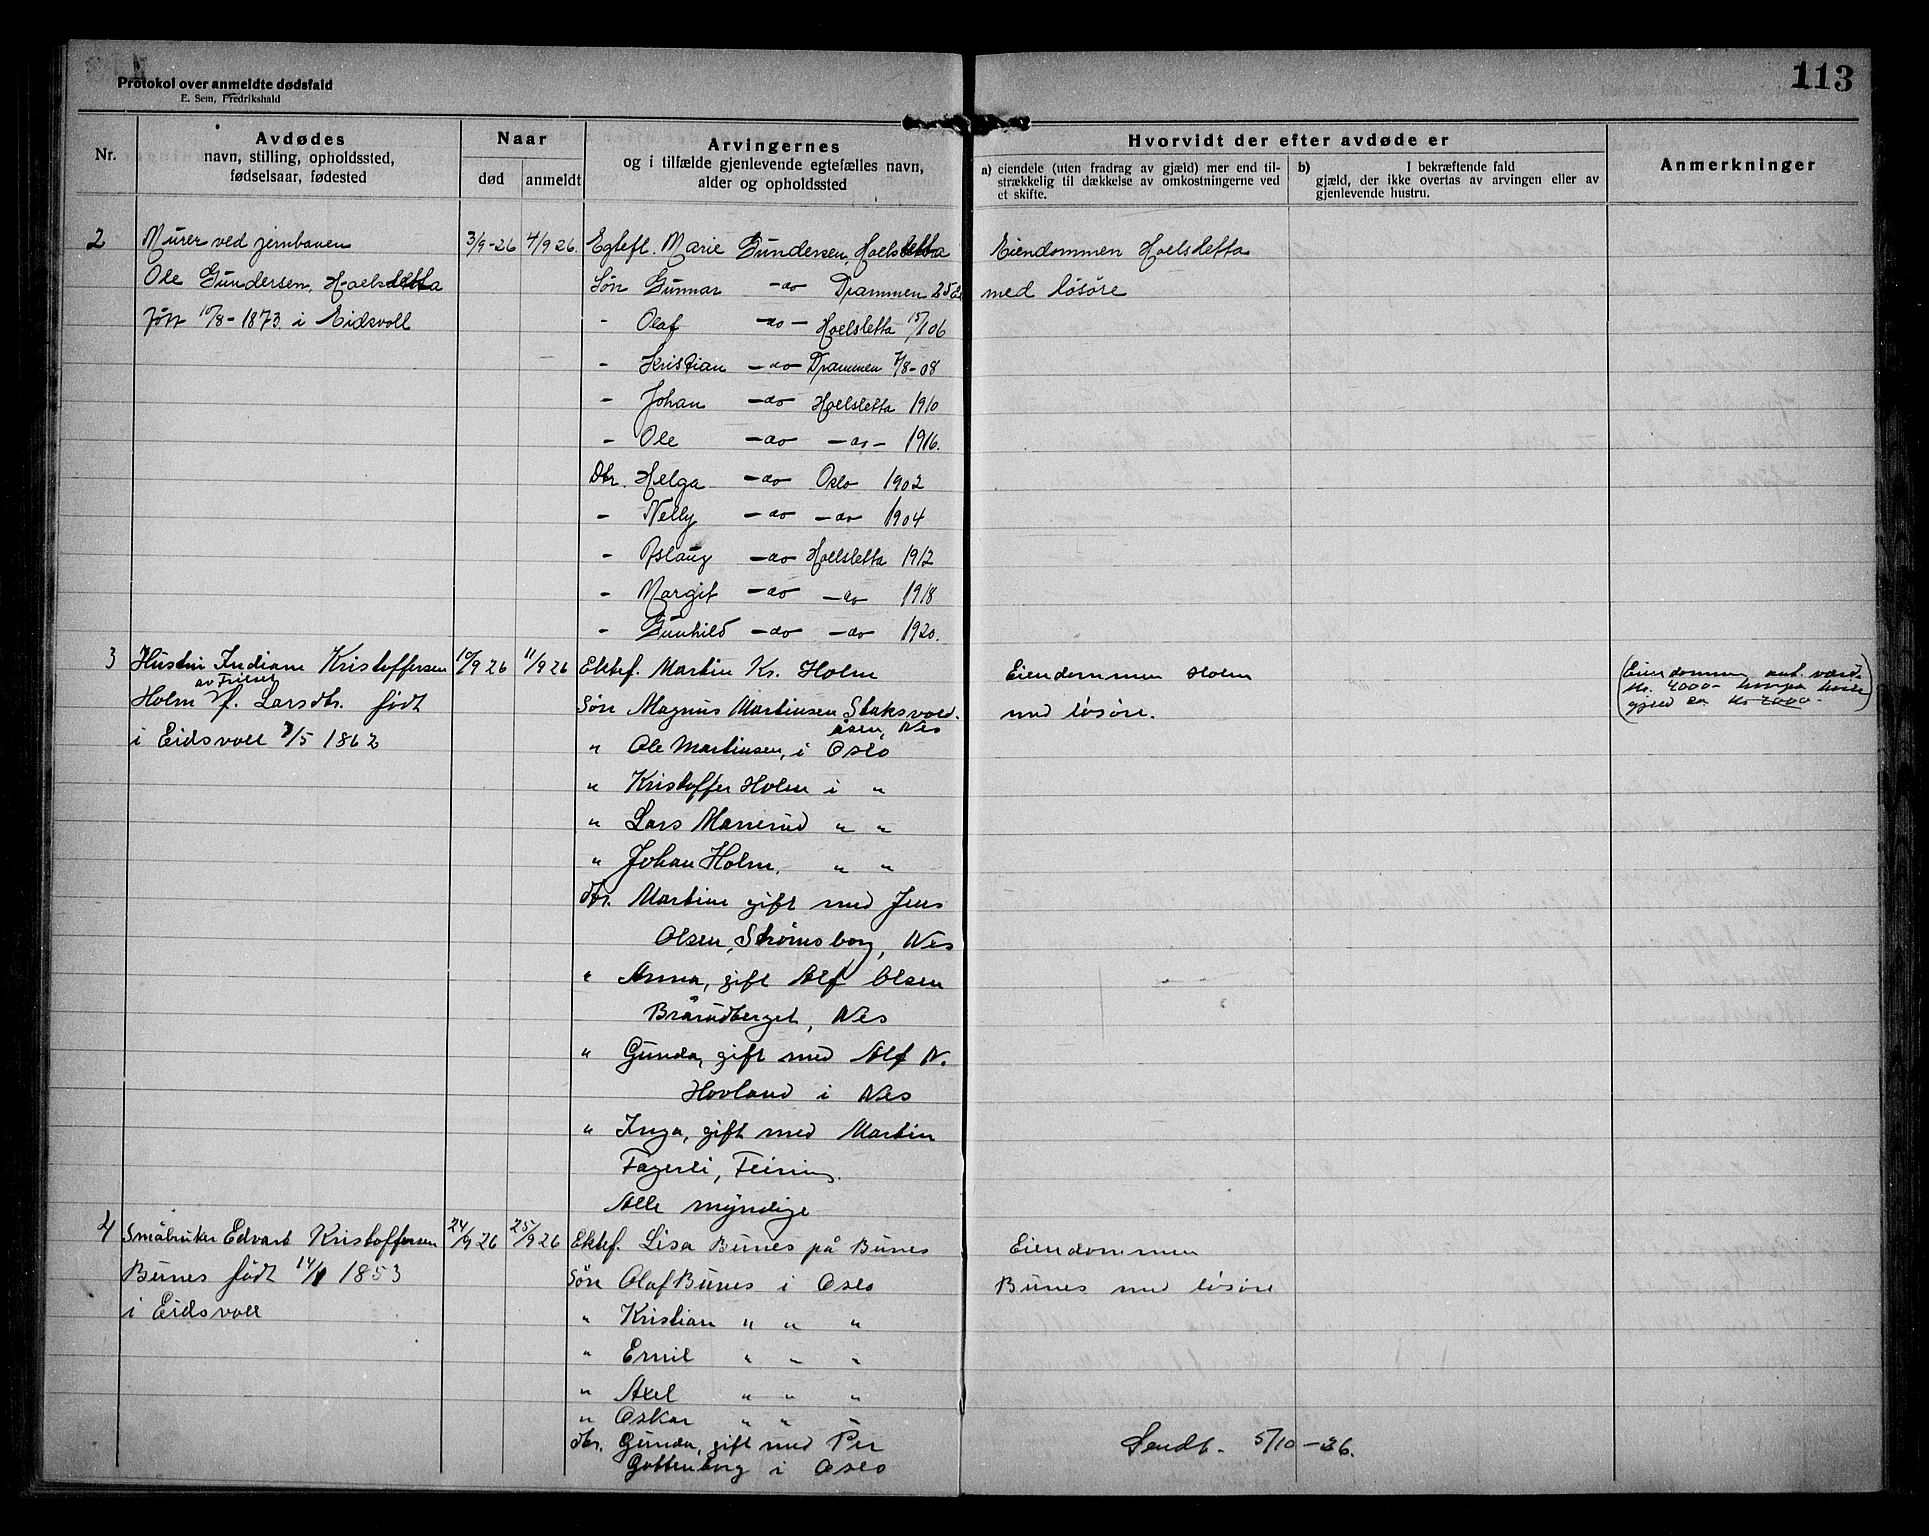 Protokol over anmeldte dødsfald
E. Sem, Fredrikshald
113
Nr.
Avdødes
navn, stilling, opholdssted,
fødselsaar, fødested
Naar
død
anmeldt
Arvingernes
og i tilfælde gjenlevende egtefælles navn,
alder og opholdssted
Hvorvidt der efter avdøde er
a) eiendele (uten fradrag av gjæld) mer end til-
strækkelig til dækkelse av omkostningerne ved
et skifte.
b) I bekræftende fald
gjæld, der ikke overtas av arvingen eller av
gjenlevende hustru.
Anmerkninger
2 Murer ved jernbanen 3/9-26 4/9 26. Egtefl. Marie Gundersen, Hoelsletta Eiendommen Hoelsletta
Ole Gundersen, Hoelsletta Søn Gunnar -do- Drammen 25 med løsøre
født 10/8-1873 i Eidsvoll - Olaf -do- Hoelsletta 15/1 06
- Kristian -do- Drammen 7/8-08
- Johan -do- Hoelsletta 1910
- Ole -do- -do- 1916.
Dtr. Helga -do- Oslo 1902
- Nelly -do- -do- 1904
- Aslaug -do- Hoelsletta 1912
- Margit -do- -do- 1918
- Gunhild -do- -do- 1920.
3 Hustru Indiane Kristoffersen 10/9 26 11/9 26 Ektef. Martin Kr. Holm Eiendommen Holm (Eiendommen ant. værd
av Frilset
Holm f. Larsdtr. født Søn Magnus Martinsen Staksvold- med løsøre. kr. 4000- hvorpå hviler
åsen, Nes gjeld ca kr 2000.)
i Eidsvoll 7/5 1862 " Ole Martinsen, i Oslo
" Kristoffer Holm i "
" Lars Marierud " "
" Johan Holm. " "
dtr. Martine gift med Jens
Olsen, Strømsborg, Nes
" Anna, gift Alf Olsen
Brårudberget, Nes
" Gunda, gift med Alf N.
Hovland i Nes
" Inga, gift med Martin
Fagerli, Feiring.
Alle myndige
4 Småbruker Edvart Kristoffersen 24/9 26 25/9 26 Ektef. Lisa Bunes på Bunes Eiendommen
Bunes født 14/1 1853 Søn Olaf Bunes i Oslo Bunes med løsøre
i Eidsvoll " Kristian " " "
" Emil " " "
" Axel " " "
" Oskar " "
dtr. Gunda, gift med Per Sendt. 5/10-26.
Gottenborg i Oslo